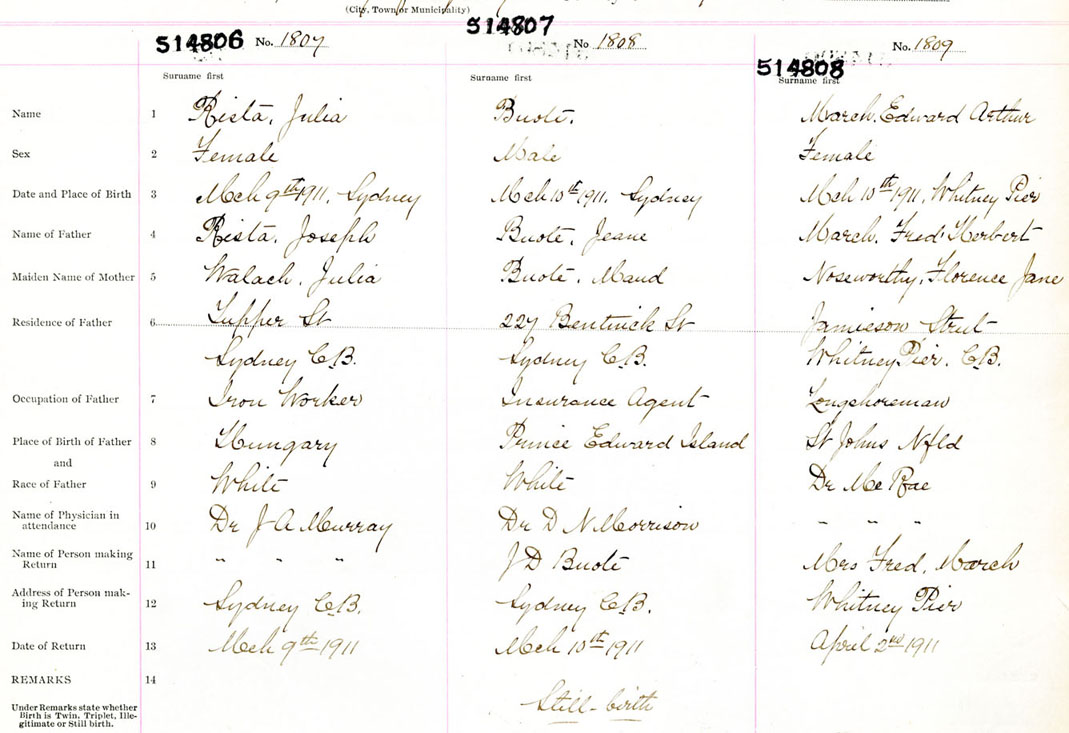 (City, Town or Municipality)
514806 No. 1807 514807 No 1808 514808 No. 1809
Surname first Surname first Surname first
Name 1 Rista, Julia Buote. March. Edward Arthur
Sex 2 Female Male Female
Date and Place of Birth 3 Mch 9th 1911, Sydney Mch 10th 1911, Sydney Mch 10th 1911, Whitney Pier
Name of Father 4 Rista, Joseph Buote, Jeane March, Fred Herbert
Maiden Name of Mother 5 Walach, Julia Buote, Maud Noseworthy, Florence Jane
Residence of Father 6 Tupper St 227 Bentinck St Jamieson Street
Sydney C.B. Sydney C.B. Whitney Pier, C.B.
Occupation of Father 7 Iron Worker Insurance Agent Longshoreman
Place of Birth of Father 8 Hungary Prince Edward Island St Johns Nfld
and
Race of Father 9 White White Dr Mc Rae
Name of Physician in
attendance 10 Dr J A Murray Dr D N Morrison " " "
Name of Person making
Return 11 " " " J D Buote Mrs Fred, March
Address of Person mak-
ing Return 12 Sydney C.B. Sydney C.B. Whitney Pier
Date of Return 13 Mch 9th 1911 Mch 10th 1911 April 2nd 1911
REMARKS 14
Under Remarks state whether
Birth is Twin, Triplet, Ille-
gitimate or Still birth.
Still-birth